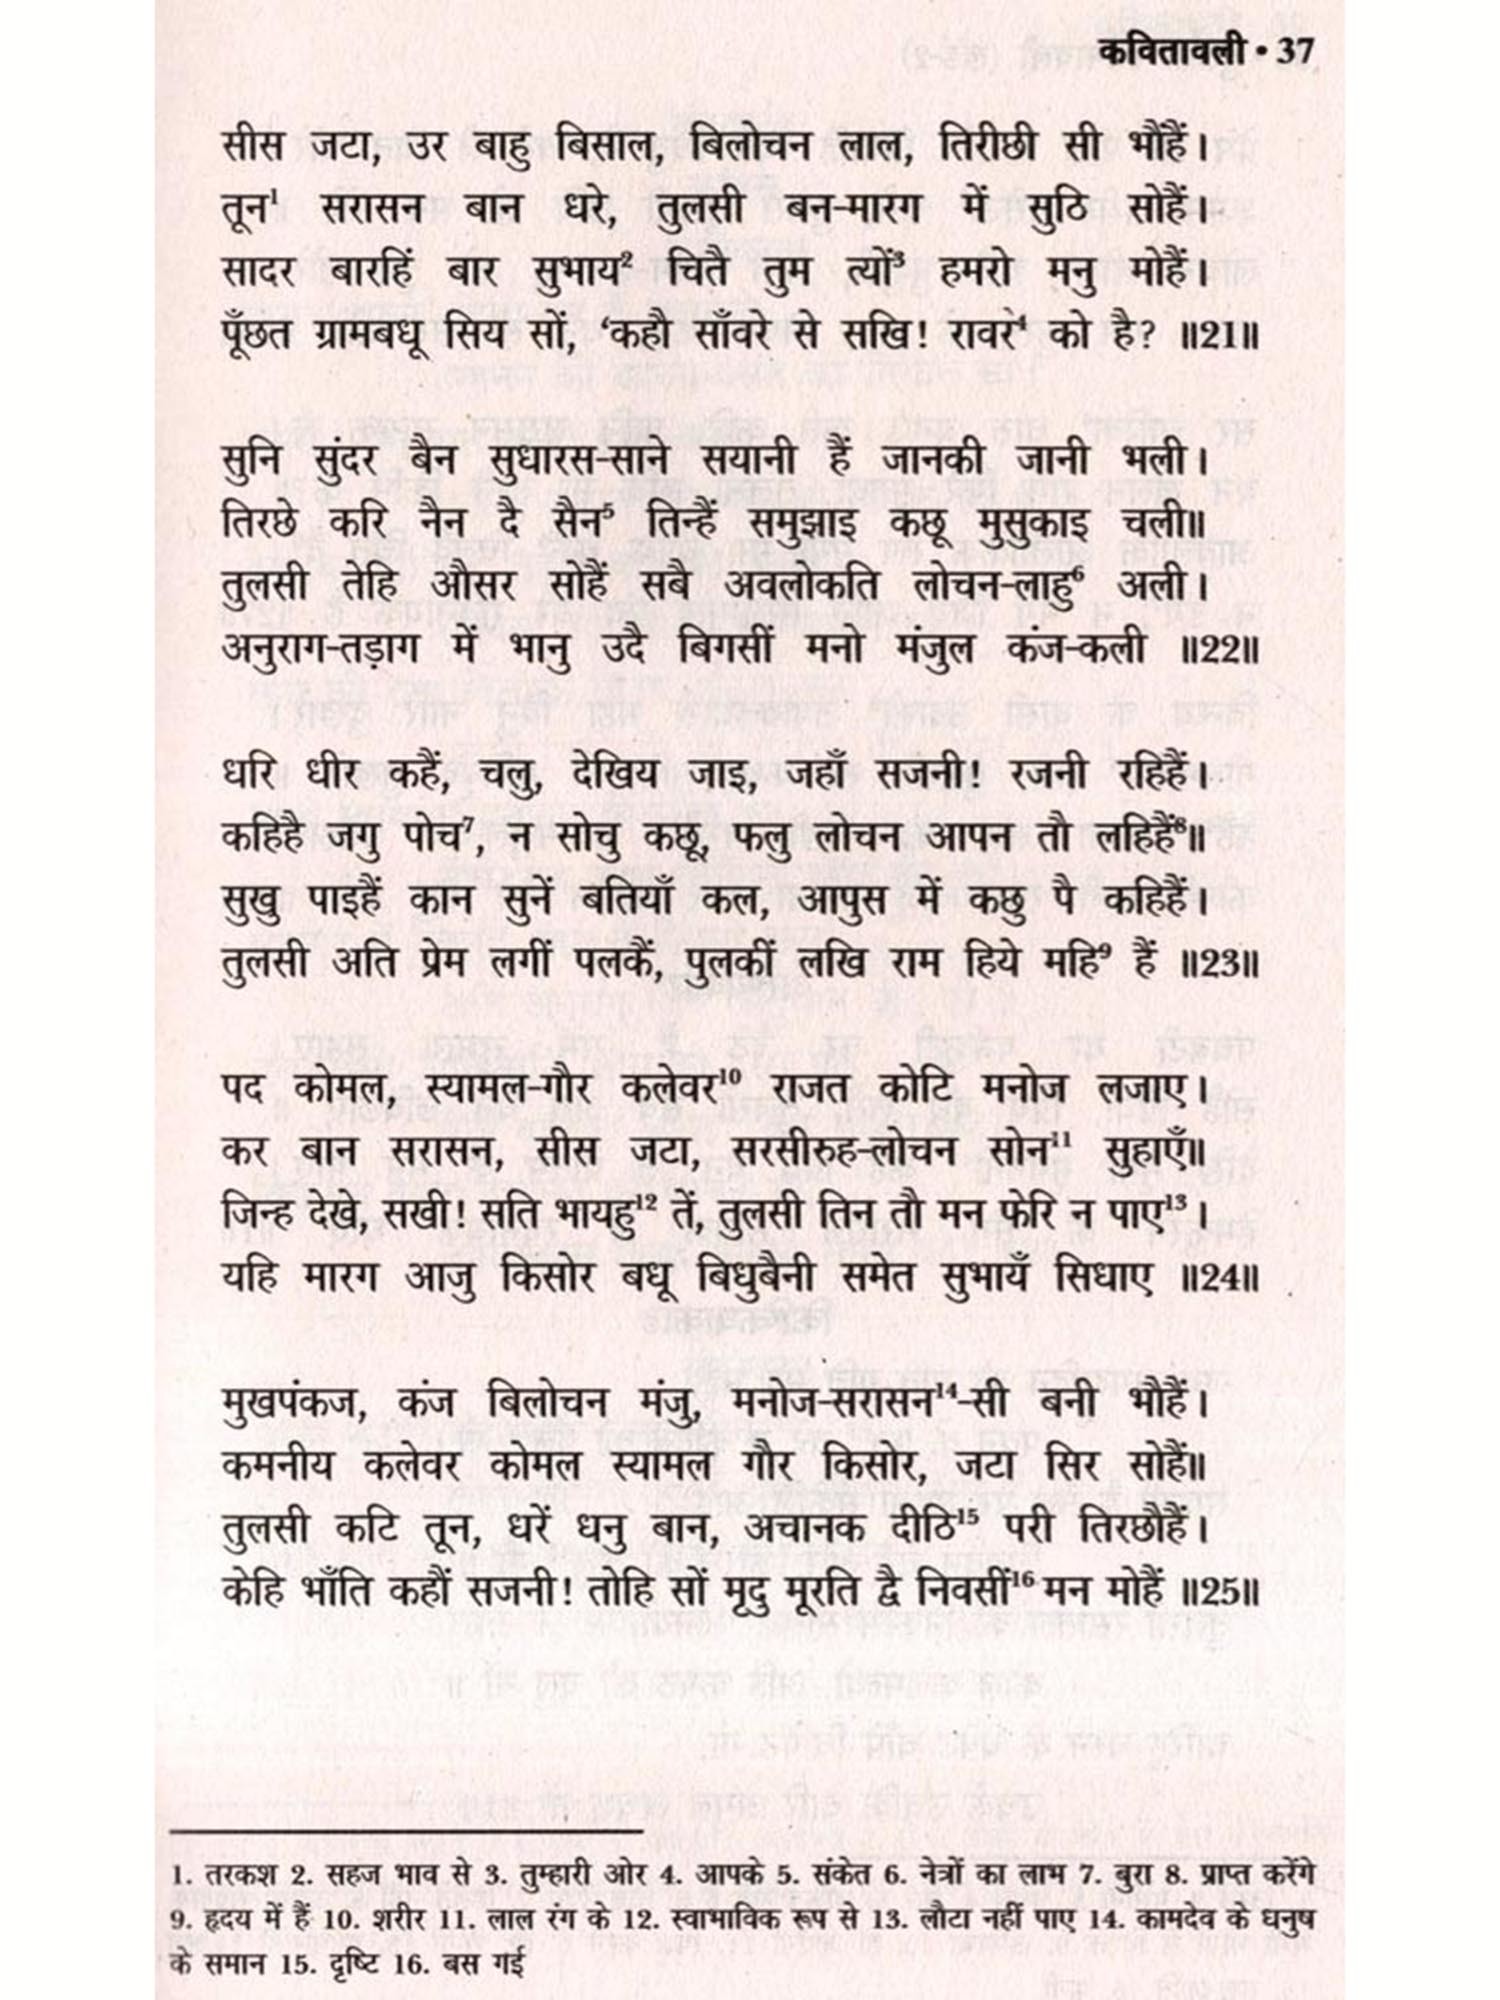 कवितावली • 37
सीस जटा, उर बाहु बिसाल, बिलोचन लाल, तिरीछी सी भौंहैं।
तून¹ सरासन बान धरे, तुलसी बन-मारग में सुठि सोहैं।
सादर बारहिं बार सुभाय² चितै तुम त्यों³ हमरो मनु मोहैं।
पूँछत ग्रामबधू सिय सों, ‘कहौ साँवरे से सखि! रावरे⁴ को है? ॥21॥
सुनि सुंदर बैन सुधारस-साने सयानी हैं जानकी जानी भली।
तिरछे करि नैन दै सैन⁵ तिन्हैं समुझाइ कछू मुसुकाइ चली॥
तुलसी तेहि औसर सोहैं सबै अवलोकति लोचन-लाहु⁶ अली।
अनुराग-तड़ाग में भानु उदै बिगसीं मनो मंजुल कंज-कली ॥22॥
धरि धीर कहैं, चलु, देखिय जाइ, जहाँ सजनी! रजनी रहिहैं।
कहिहै जगु पोच⁷, न सोचु कछू, फलु लोचन आपन तौ लहिहैं⁸॥
सुखु पाइहैं कान सुनें बतियाँ कल, आपुस में कछु पै कहिहैं।
तुलसी अति प्रेम लगीं पलकैं, पुलकीं लखि राम हिये महि⁹ हैं ॥23॥
पद कोमल, स्यामल-गौर कलेवर¹⁰ राजत कोटि मनोज लजाए।
कर बान सरासन, सीस जटा, सरसीरुह-लोचन सोन¹¹ सुहाएँ॥
जिन्ह देखे, सखी! सति भायहु¹² तें, तुलसी तिन तौ मन फेरि न पाए¹³।
यहि मारग आजु किसोर बधू बिधुबैनी समेत सुभायँ सिधाए ॥24॥
मुखपंकज, कंज बिलोचन मंजु, मनोज-सरासन¹⁴-सी बनी भौहैं।
कमनीय कलेवर कोमल स्यामल गौर किसोर, जटा सिर सोहैं॥
तुलसी कटि तून, धरें धनु बान, अचानक दीठि¹⁵ परी तिरछौहैं।
केहि भाँति कहौं सजनी! तोहि सों मृदु मूरति द्वै निवसीं¹⁶ मन मोहैं ॥25॥
1. तरकश 2. सहज भाव से 3. तुम्हारी ओर 4. आपके 5. संकेत 6. नेत्रों का लाभ 7. बुरा 8. प्राप्त करेंगे
9. हृदय में हैं 10. शरीर 11. लाल रंग के 12. स्वाभाविक रूप से 13. लौटा नहीं पाए 14. कामदेव के धनुष
के समान 15. दृष्टि 16. बस गई